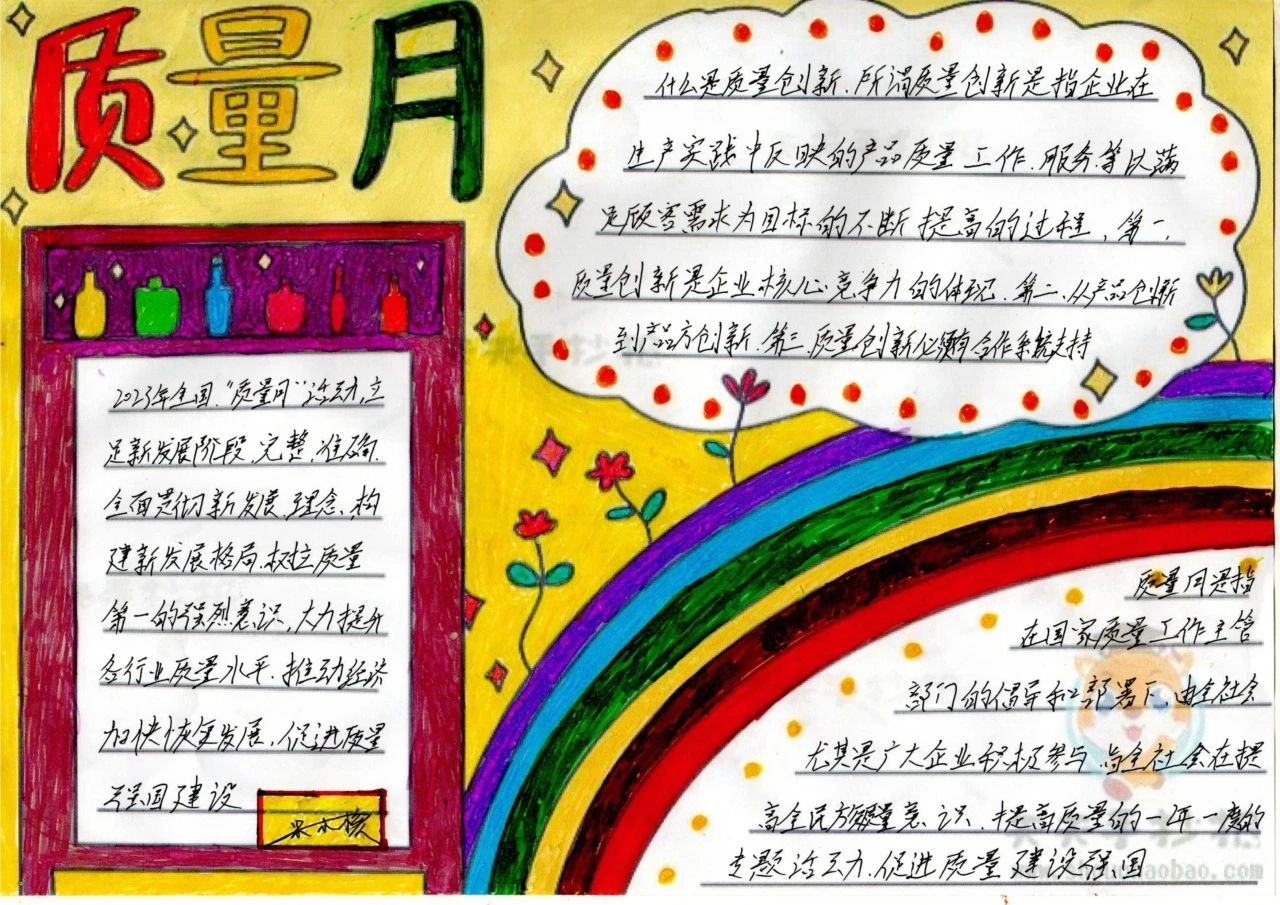 质量月
什么是质量创新、所谓质量创新是指企业在
生产实践中反映的产品质量工作、服务等以满
足顾客需求为目标的不断提高的过程、第一,
质量创新是企业核心竞争力的体现、第二、从产品创新
到产品方创新、第三、质量创新必须有合作系统支持
2023年全国“质量月”活动,立
足新发展阶段、完整、准确、
全面贯彻新发展理念、构
建新发展格局、树立质量
第一的强烈意识,大力提升
各行业质量水平、推动经济
加快恢复发展,促进质量
强国建设
质量月是指
在国家质量工作主管
部门的倡导和部署下、由全社会
尤其是广大企业积极参与、与全社会在提
高全民方质量意识、提高质量的一年一度的
专题活动、促进质量建设强国